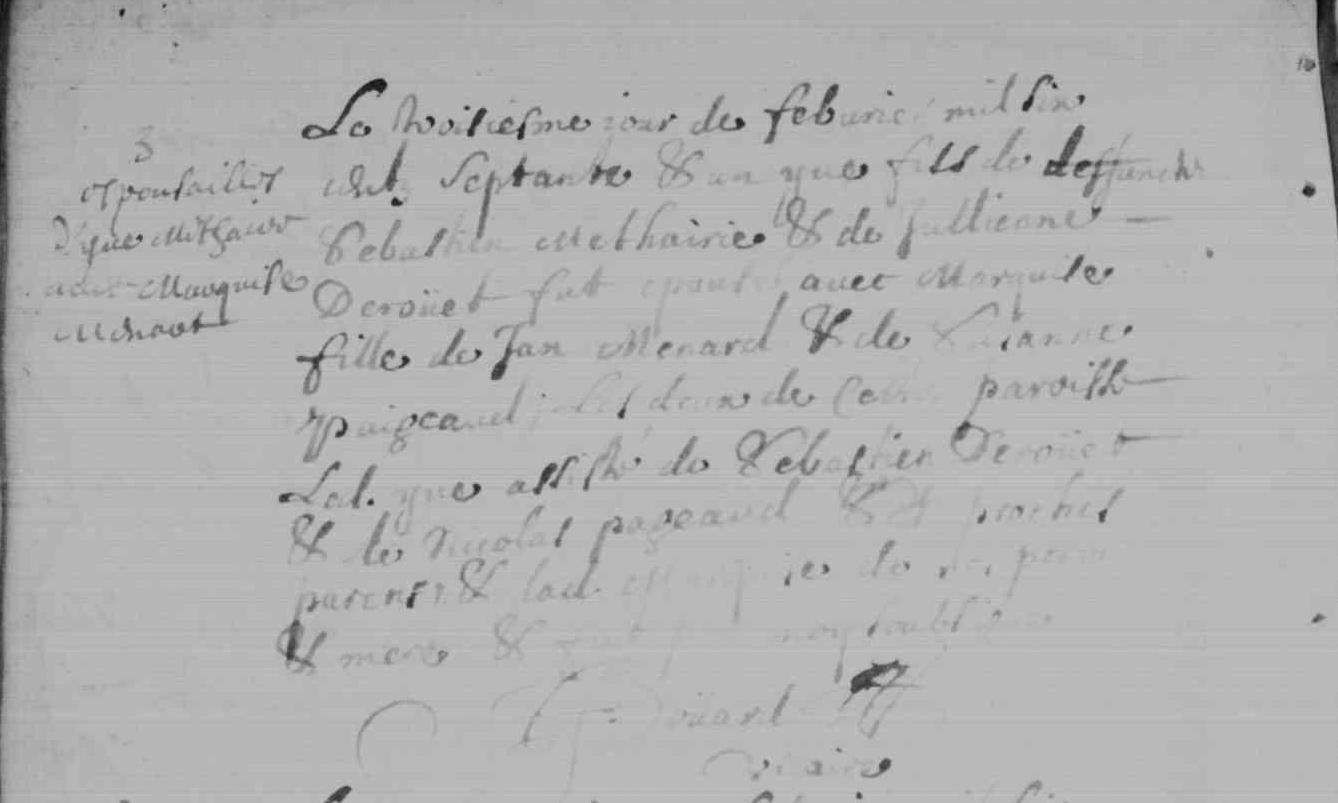 3
espousailles
d'yue Methairie
avec Marquise
Menard
Le troisiesme jour de febvrier mil six
cent septante & un yue fils de deffunct
Sebastien Methairie & de Jullienne
Deroüet fut epousé avec Marquise
fille de Jan Menard & de Susanne
Paigeaud les deux de cette paroisse
Led. yue assisté de Sebastien Deroüet
& de Nicolas pageaud & proches
parents & lad. Marquise de ses pere
& mere & par moy soubs
vicaire